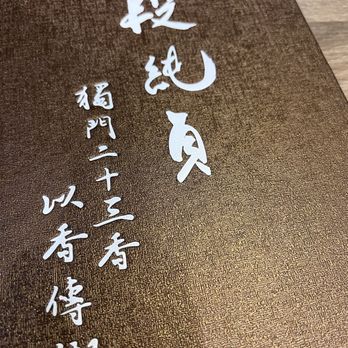 段純貞
獨門二十三香
以香傳